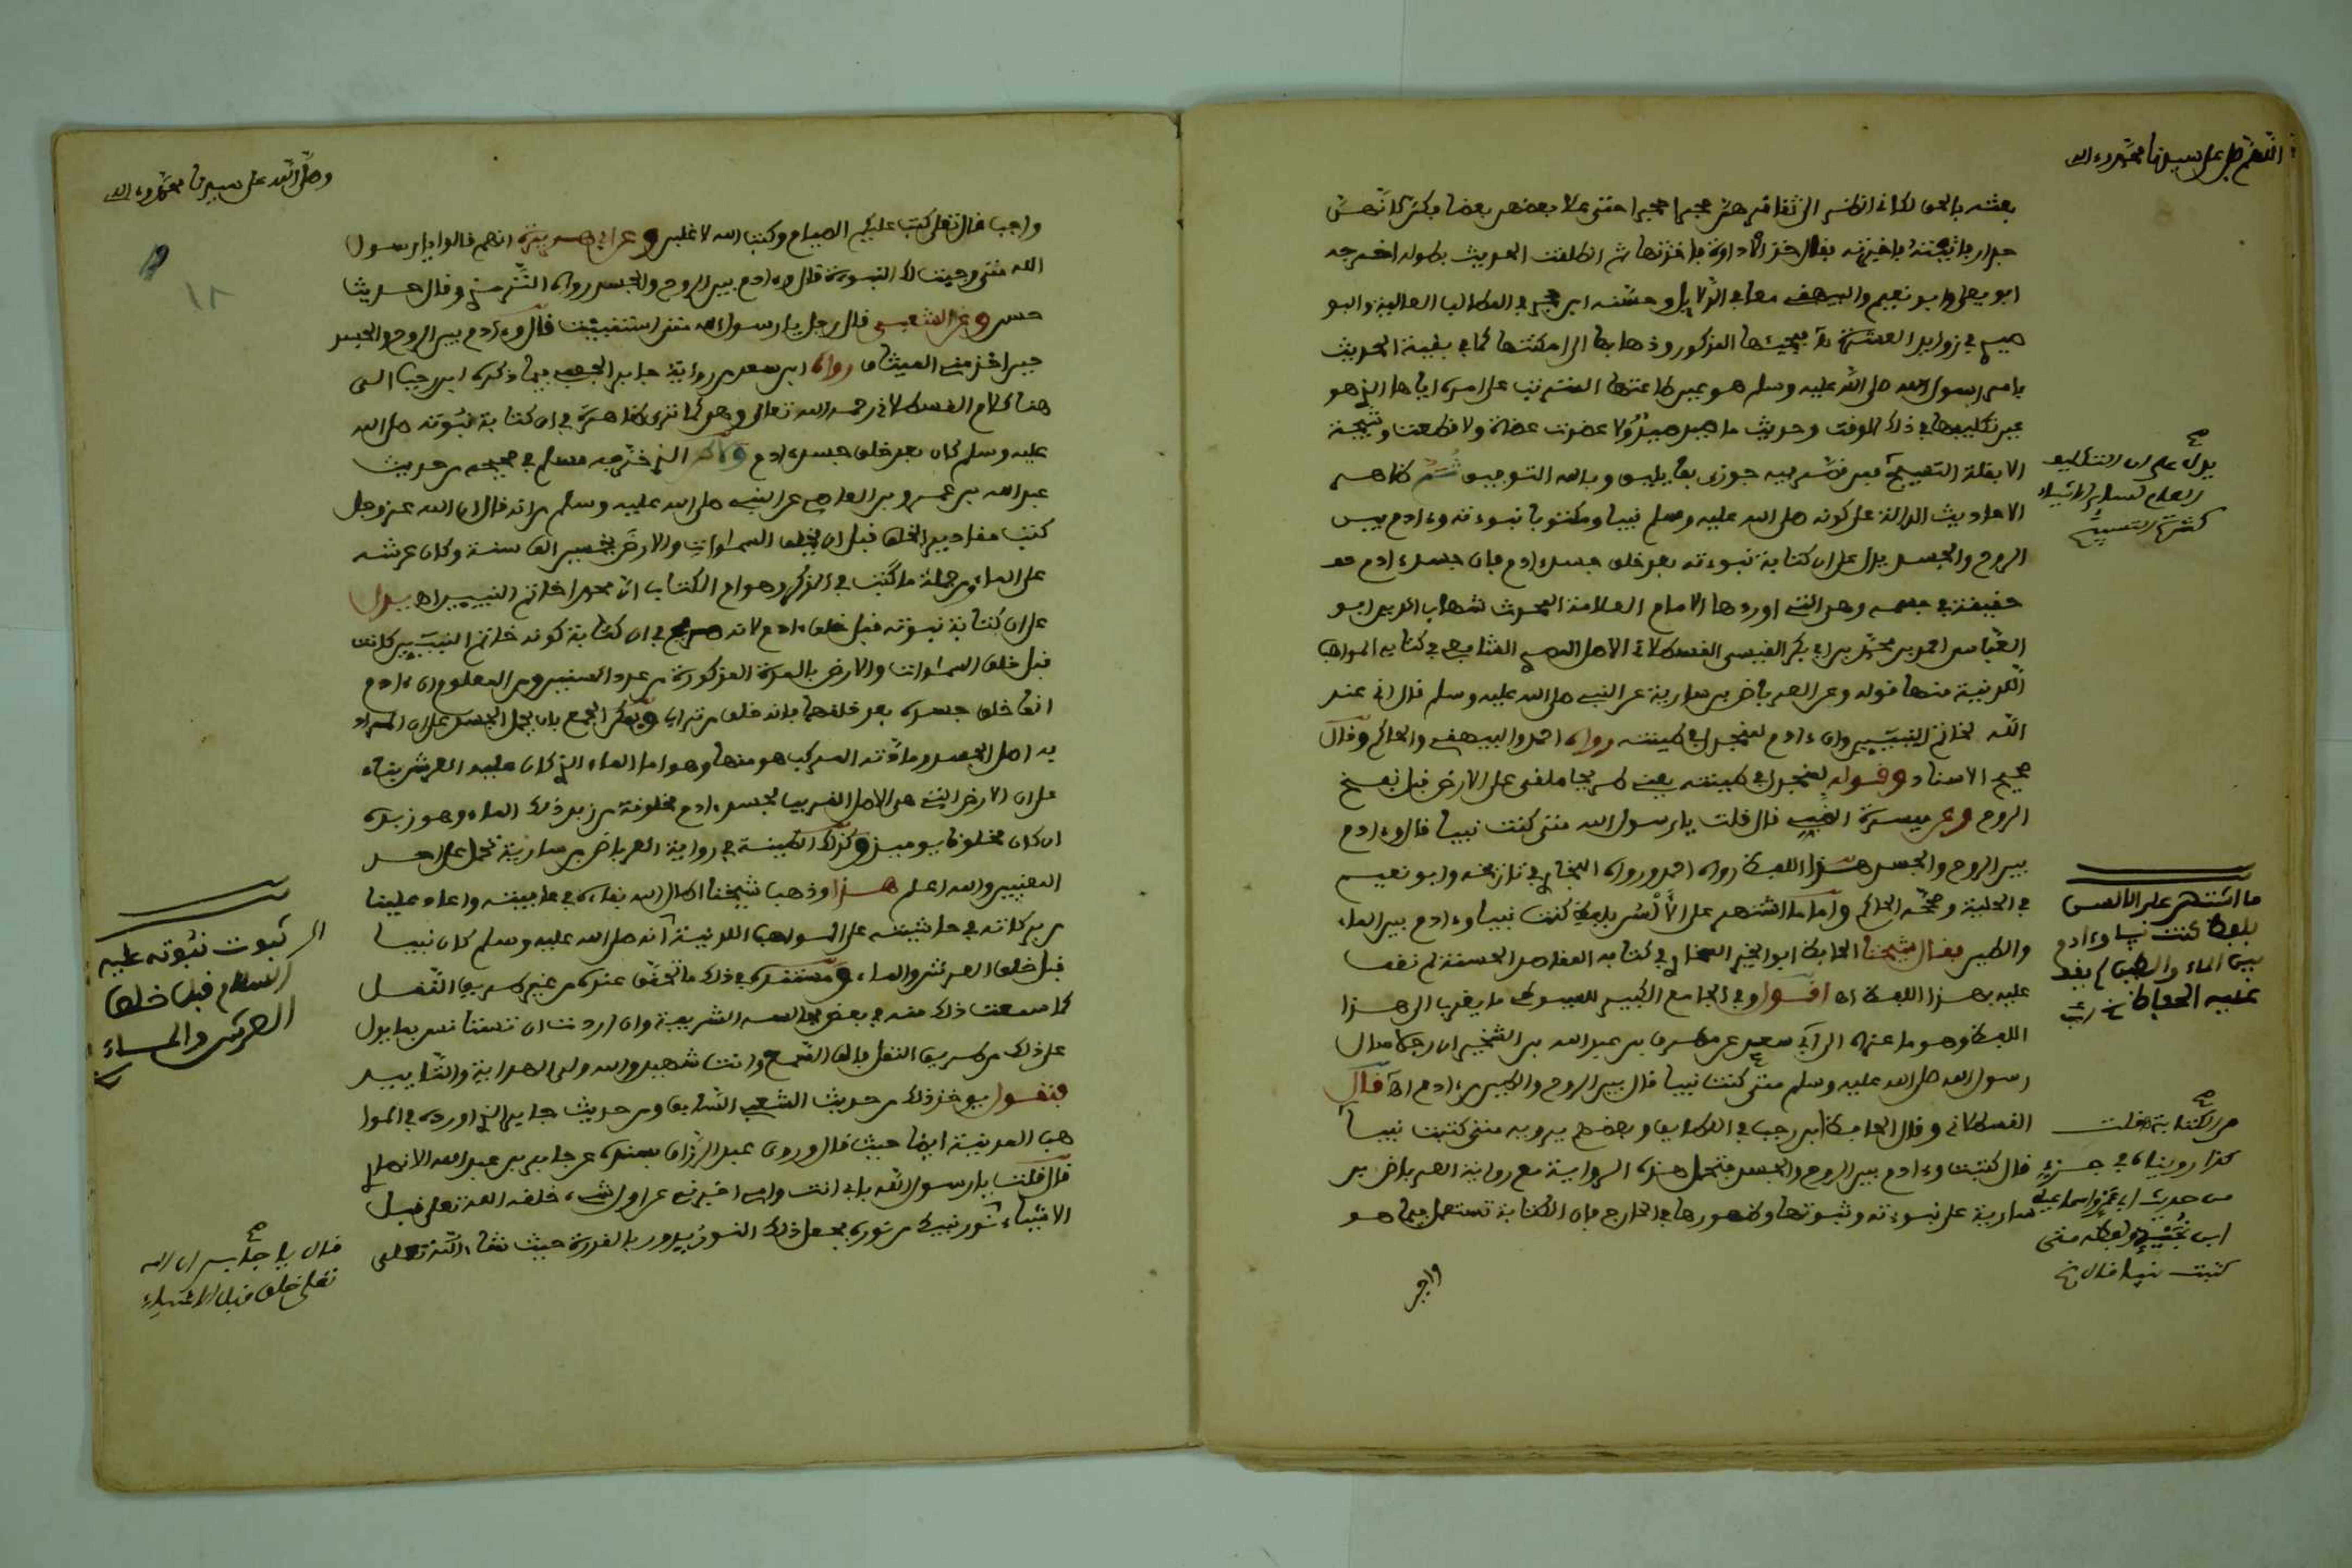 اللهم صل على سيدنا محمد وءاله
بعثه بالحق لكاني انظر الى تفافرهن حجرا حجرا حتى علا بعضهن بعضا
ابو يعلى وابو نعيم والبيهقي معا في الدلايل وحسنه ابن حجر في المطالب العالية والبو
صيري في زوايد العشرة مجيئها المذكور وذهابها الى امكنتها كما في بقية الحديث
بامر رسول الله صلى الله عليه وسلم هو عين طاعتها المترتب على امره اياها الذي هو
عين تكليفها في ذلك الوقت وحديث ما صيد صيد ولا عضدت عضاة ولا قطعت وشيجة
الا بقلة التسبيح وبالله التوفيق ثم ظاهر
الاحاديث الدالة على كونه صلى الله عليه وسلم نبيا ومكتوبا نبوءته وءادم بين
الروح والجسد يدل على ان كتابة نبوءته بعد خلق جسد ءادم فان جسد ءادم
حقيقة في جسمه وهو التي اوردها الامام العلامة المحدث شهاب الدين ابو
العباس احمد بن محمد بن ابي بكر القيسي القسطلاني الاصل المصري الشافعي في كتابه المواهب
اللدنية منها قوله وعن العرباض بن سارية عن النبي صلى الله عليه وسلم قال اني عند
الله لخاتم النبيين وان ءادم لمنجدل في طينته رواه احمد والبيهقي والحاكم وقال
صحيح الاسناد وقوله لمنجدل في طينته يعني طريحا ملقى على الارض قبل نفخ
الروح وعن ميسرة الضبي قال قلت يا رسول الله متى كنت نبيا قال وءادم
بين الروح والجسد هذا اللفظ رواه احمد ورواه البخاري في تاريخه وابو نعيم
في الحلية وصححه الحاكم واما ما اشتهر على الالسن بلفظ كنت نبيا وءادم بين الماء
والطين فقال شيخنا الحافظ ابو الخير السخاوي في كتابه المقاصد الحسنة لم نقف
عليه بهذا اللفظ اه اقول وفي الجامع الكبير للسيوطي ما يقرب الى هذا
اللفظ وهو ما عزاه الى ابن سعد عن مطرف بن عبد الله بن الشخير ان رجلا سال
رسول الله صلى الله عليه وسلم متى كنت نبيا قال بين الروح والطين من ءادم اه قال
القسطلاني وقال الحافظ ابن رجب في اللطايف وبعضهم يرويه متى كتبت نبيا
قال كتبت وءادم بين الروح والجسد فتحمل هذه الرواية مع رواية العرباض بن
سارية على نبوءته وثبوتها وظهورها في الخارج فان الكتابة تستعمل فيما هو
واجب
يدل على ان التكليف
العام لساير الاشياء
كثرة التسبيح
ما اشتهر على الالسن
بلفظ كنت نبيا وءادم
بين الماء والطين لم يقف
عليه الحفاظ
من الكتابة قلت
كذا رويناه في جزء
من حديث ابي عمرو اسماعيل
ابن نجيد ولفظه متى
كتبت نبيا قال
وصلى الله على سيدنا محمد وءاله
١٨
واجب قال تعلى كتب عليكم الصيام وكتب الله لاغلبن وعن ابي هريرة انهم قالوا يا رسول
الله متى وجبت لك النبوءة قال وءادم بين الروح والجسد رواه الترمذي وقال حديث
حسن وعن الشعبي قال رجل يا رسول الله متى استنبئت قال وءادم بين الروح والجسد
حين اخذ مني الميثاق رواه ابن سعد من رواية جابر الجعفي فيما ذكره ابن رجب انتهى
هنا كلام القسطلاني رحمه الله تعالى وهو كما ترى ظاهره في ان كتابة نبوته صلى الله
عليه وسلم كان بعد خلق جسد ءادم الذي خرجه مسلم في صحيحه من حديث
عبد الله بن عمرو بن العاصي عن النبي صلى الله عليه وسلم من انه قال ان الله عز وجل
كتب مقادير الخلق قبل ان يخلق السماوات والارض بخمسين الف سنة وكان عرشه
على الماء ومن جملة ما كتب في الذكر وهو ام الكتاب ان محمدا خاتم النبيين اه يدل
على ان كتابة نبوته قبل خلق ءادم لانه صريح في ان كتابة كونه خاتم النبيين كانت
قبل خلق السماوات والارض بالمدة المذكورة من عدد السنين ومن المعلوم ان ءادم
انما خلق جسده بعد خلقهما بانه خلق من تراب ويمكن الجمع بان يحمل الجسد على ان المراد
به اصل الجسد ومادته المركب هو منها وهو اما الماء الذي كان عليه العرش بناء
على ان الارض التي هي الاصل القريب لجسد ءادم مخلوقة من زبد ذلك الماء وهو زبده
ان كان مخلوقا يوميذ وكذلك الطينة في رواية العرباض بن سارية تحمل على احد
المعنيين والله اعلم هذا وذهب شيخنا اطال الله بقاءه في عافيته واعاد علينا
من بركاته في حاشيته على المواهب اللدنية انه صلى الله عليه وسلم كان نبيا
قبل خلق العرش والماء ومستنده في ذلك ما تحقق عنده من غير طريق النقل
كما سمعت ذلك منه في بعض مجالسه الشريفة وان اردت ان تستانس بما يدل
على ذلك من طريق النقل فالق السمع وانت شهيد والله ولي الهداية والتاييد
فنقول يوخذ ذلك من حديث الشعبي السابق ومن حديث جابر الذي اورده في الموا
هب المدنية ايضا حيث قال وروى عبد الرزاق بسنده عن جابر بن عبد الله الانصاري
قال قلت يا رسول الله بابي انت وامي اخبرني عن اول شيء خلقه الله تعلى قبل
الاشياء نور نبيك من نوره فجعل ذلك النور يدور بالقدرة حيث شاء الله تعلى
ثبوت نبوته عليه
السلام قبل خلق
العرش والماء
قال يا جابر ان الله
تعلى خلق قبل الاشياء